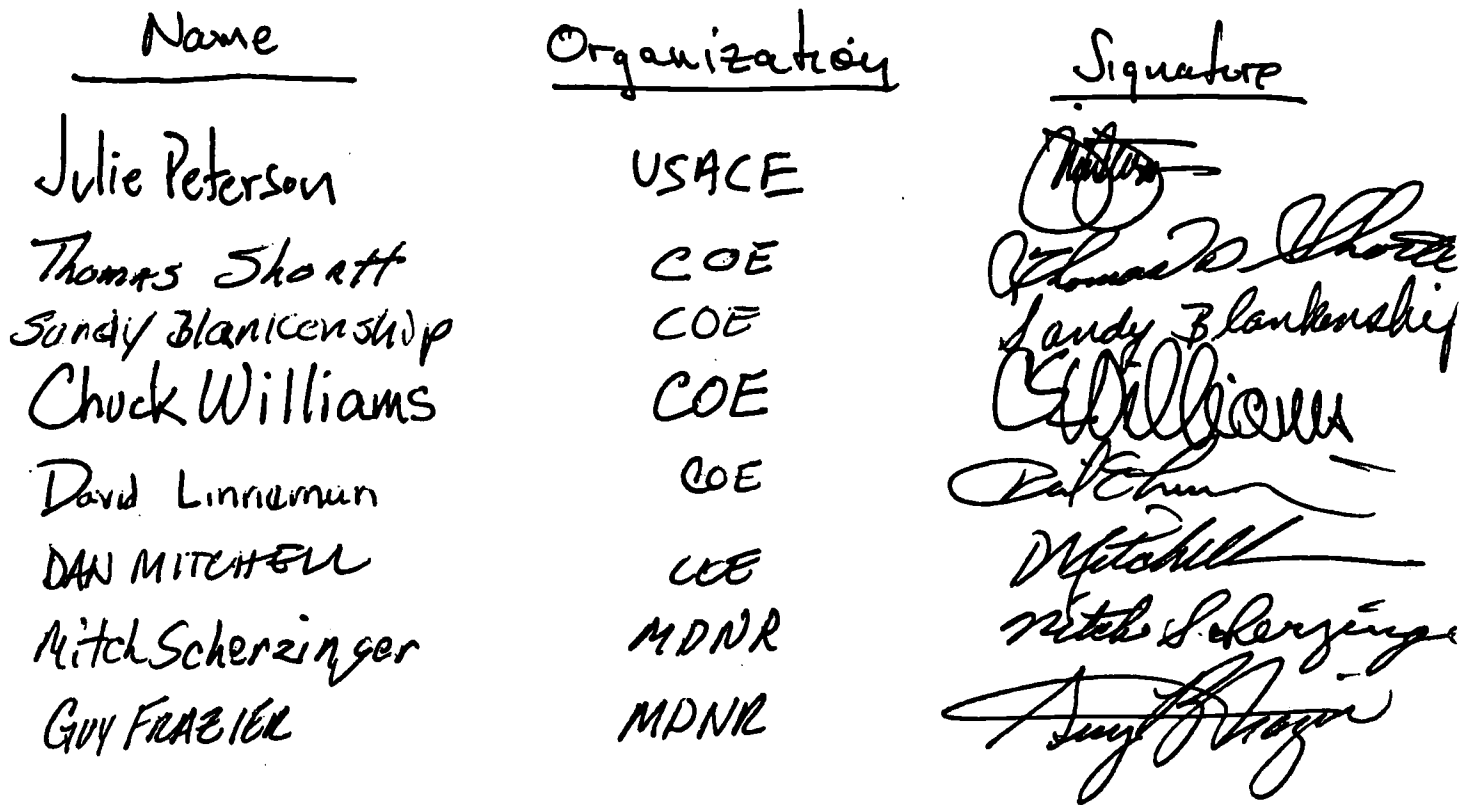 Name Organization Signature
Julie Peterson USACE
Thomas Shortt COE Thomas W Shortt
Sandy Blankenship COE Sandy Blankenship
Chuck Williams COE CSWilliams
David Linneman COE
DAN MITCHELL COE DMitchell
Mitch Scherzinger MDNR Mitch Scherzinge
GUY FRAZIER MDNR Guy Frazier